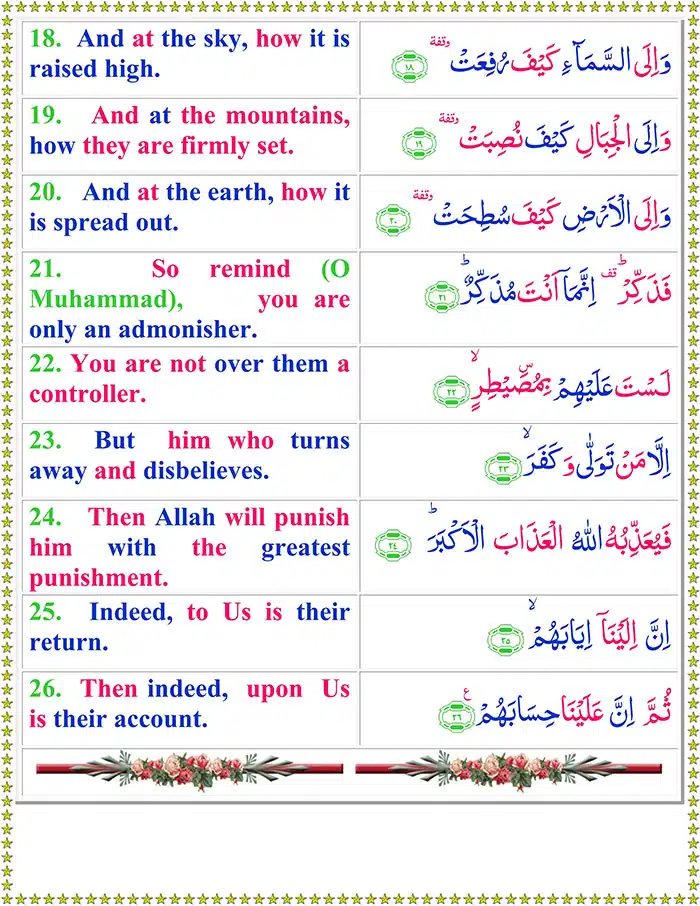 18. And at the sky, how it is
raised high.
وَاِلَى السَّمَآءِ كَيْفَ رُفِعَتْ وقفة ۱۸
19. And at the mountains,
how they are firmly set.
وَاِلَى الْجِبَالِ كَيْفَ نُصِبَتْ وقفة ۱۹
20. And at the earth, how it
is spread out.
وَاِلَى الْاَرْضِ كَيْفَ سُطِحَتْ وقفة ۲۰
21. So remind (O
Muhammad), you are
only an admonisher.
فَذَكِّرْ ؕ قف اِنَّمَاۤ اَنْتَ مُذَكِّرٌ ؕ ۲۱
22. You are not over them a
controller.
لَسْتَ عَلَيْهِمْ بِمُصَۜيْطِرٍ ۙ ۲۲
23. But him who turns
away and disbelieves.
اِلَّا مَنْ تَوَلّٰى وَكَفَرَ ۙ ۲۳
24. Then Allah will punish
him with the greatest
punishment.
فَيُعَذِّبُهُ اللّٰهُ الْعَذَابَ الْاَكْبَرَ ؕ ۲٤
25. Indeed, to Us is their
return.
اِنَّ اِلَيْنَاۤ اِيَابَهُمْ ۙ ۲٥
26. Then indeed, upon Us
is their account.
ثُمَّ اِنَّ عَلَيْنَا حِسَابَهُمْ ع ۲٦